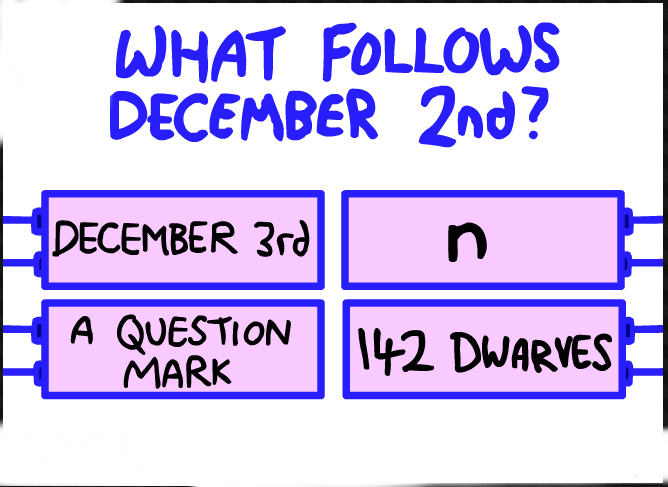 WHAT FOLLOWS
DECEMBER 2nd?
DECEMBER 3rd
n
A QUESTION
MARK
142 DWARVES